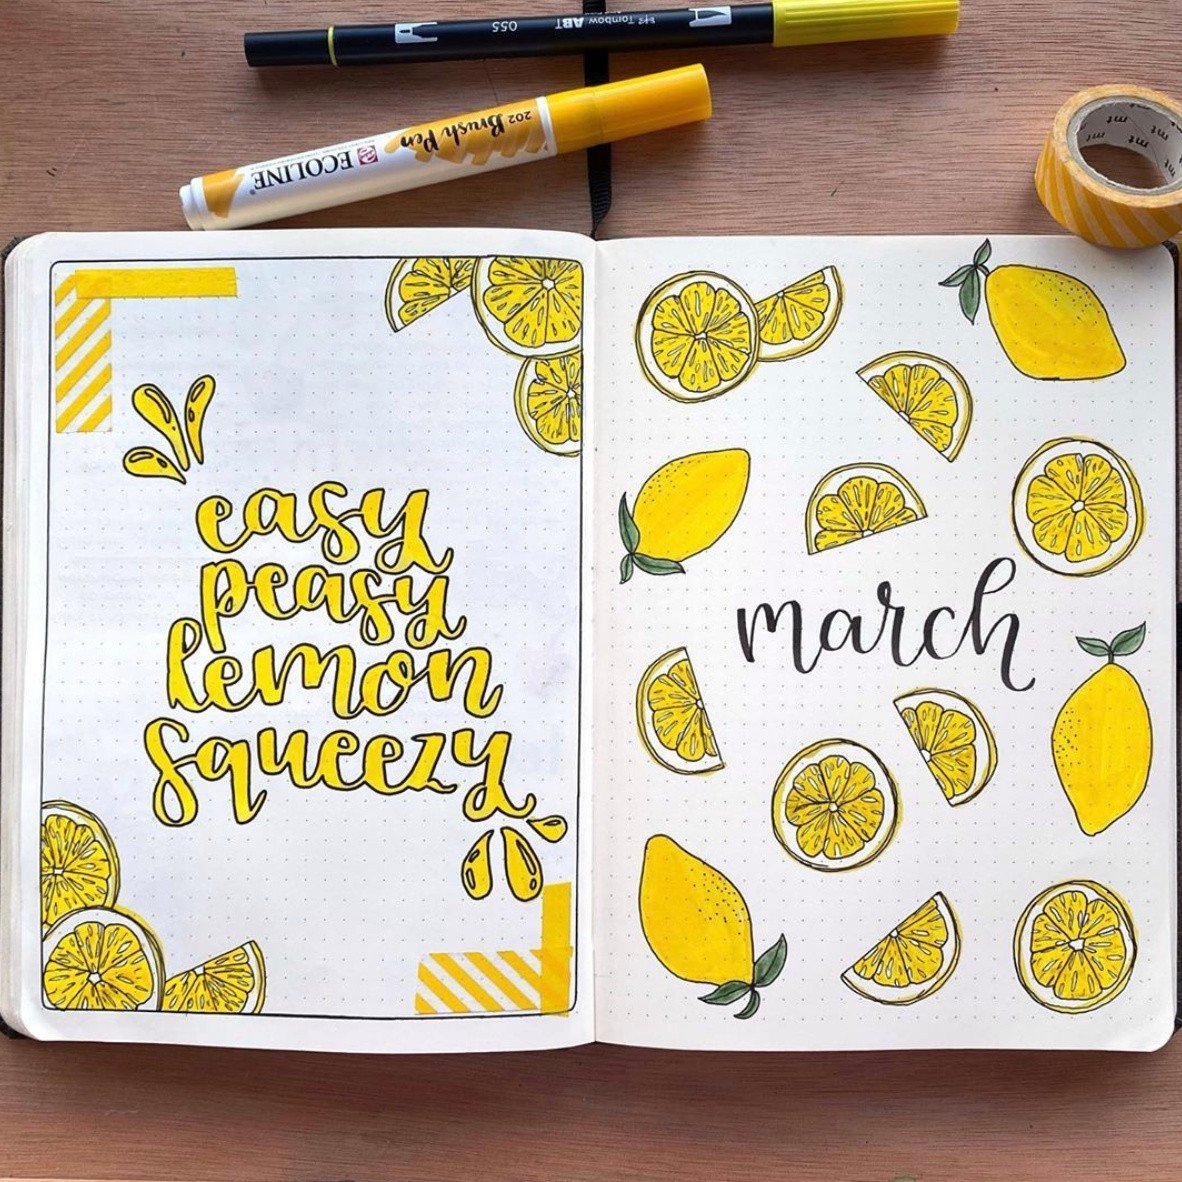 055 Tombow ABT
202 Brush Pen
ECOLINE
mt mt mt
easy
peasy
lemon
squeezy
march